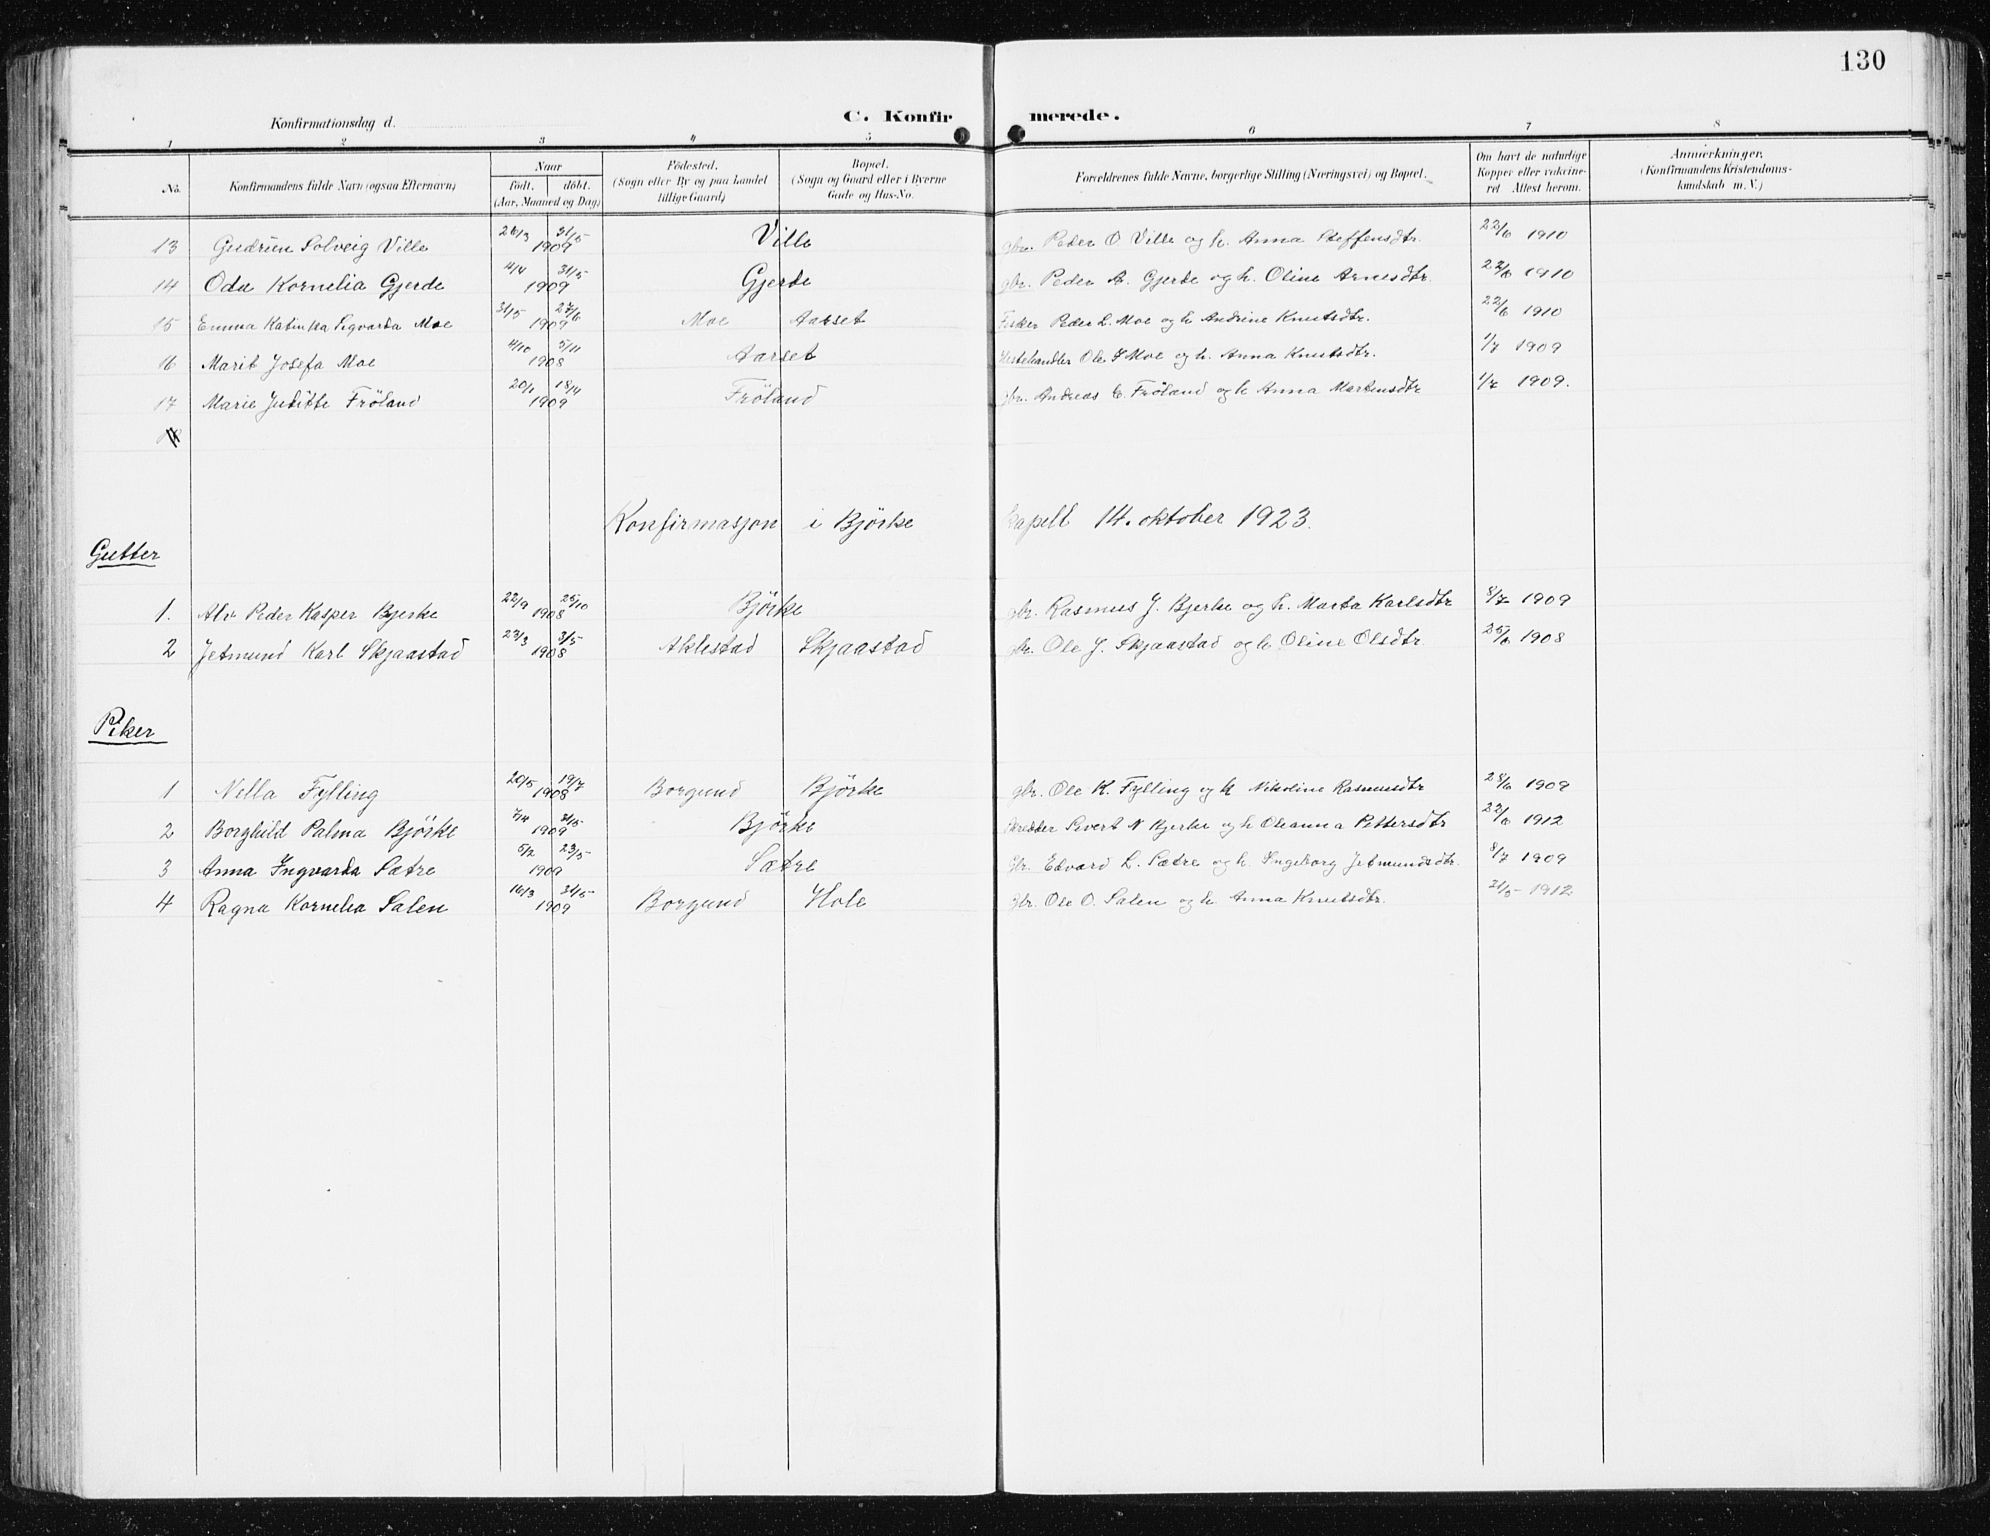 130
Konfirmationsdag d. C. Konfirmerede.
1 2 3 4 5 6 7 8
No. Konfirmandens fulde Navn (ogsaa Efternavn) Naar født. døbt. (Aar, Maaned og Dag) Fødested. (Sogn eller By og paa Landet tillige Gaard) Bopæl. (Sogn og Gaard eller i Byerne Gade og Hus-No. Forældrenes fulde Navne, borgerlige Stilling (Næringsvei) og Bopæl. Om havt de naturlige Kopper eller vakcineret. Attest herom. Anmærkninger. (Konfirmandens Kristendomskundskab m. V.)
13 Gudrun Solveig Ville 26/3 31/5 1909 Ville gbr. Peder O Ville og h. Anna Steffensdtr. 22/6 1910
14 Oda Kornelia Gjerde 4/4 31/5 1909 Gjerde gbr. Peder A. Gjerde og h. Oline Arnesdtr. 22/6 1910
15 Emma Katinka Sigvarda Moe 31/5 27/6 1909 Moe Aarset Fisker Peder L. Moe og h Andrine Knutsdtr. 22/6 1910
16 Marit Josefa Moe 4/10 5/11 1908 Aarset Hestehandler Ole S Moe og h. Anna Knutsdtr. 1/7 1909
17 Marie Juditte Fröland 20/1 18/4 1909 Fröland gbr. Andreas C. Fröland og h Anna Martinsdtr 1/7 1909.
Konfirmasjon i Björke kapell 14. oktober 1923.
Gutter
1. Alv Peder Kasper Bjerke 22/9 25/10 1908 Björke gbr. Rasmus J. Bjerke og h. Marta Karlsdtr 8/7 1909
2 Jetmund Karl Skjaastad 23/3 3/5 1908 Aklestad Skjaastad gbr. Ole J. Skjaastad og h Oline Olsdtr 25/6 1908
Piker
1 Nella Fylling 20/5 19/7 1908 Borgund Björke gbr. Ole K. Fylling og h Nikoline Rasmusdtr 28/6 1909
2 Borghild Palma Björke 7/4 31/5 1909 Björke Skredder Sivert N Bjerke og h Oleanna Pettersdtr 22/6 1912
3 Anna Ingvarda Sætre 5/2 23/5 1909 Sætre Gbr. Edvard L. Sætre og h. Ingeborg Jetmundsdtr. 8/7 1909
4 Ragna Kornelia Salen 16/3 31/5 1909 Borgund Hole Gbr. Ole O. Salen og h. Anna Knutsdtr. 21/5 - 1912